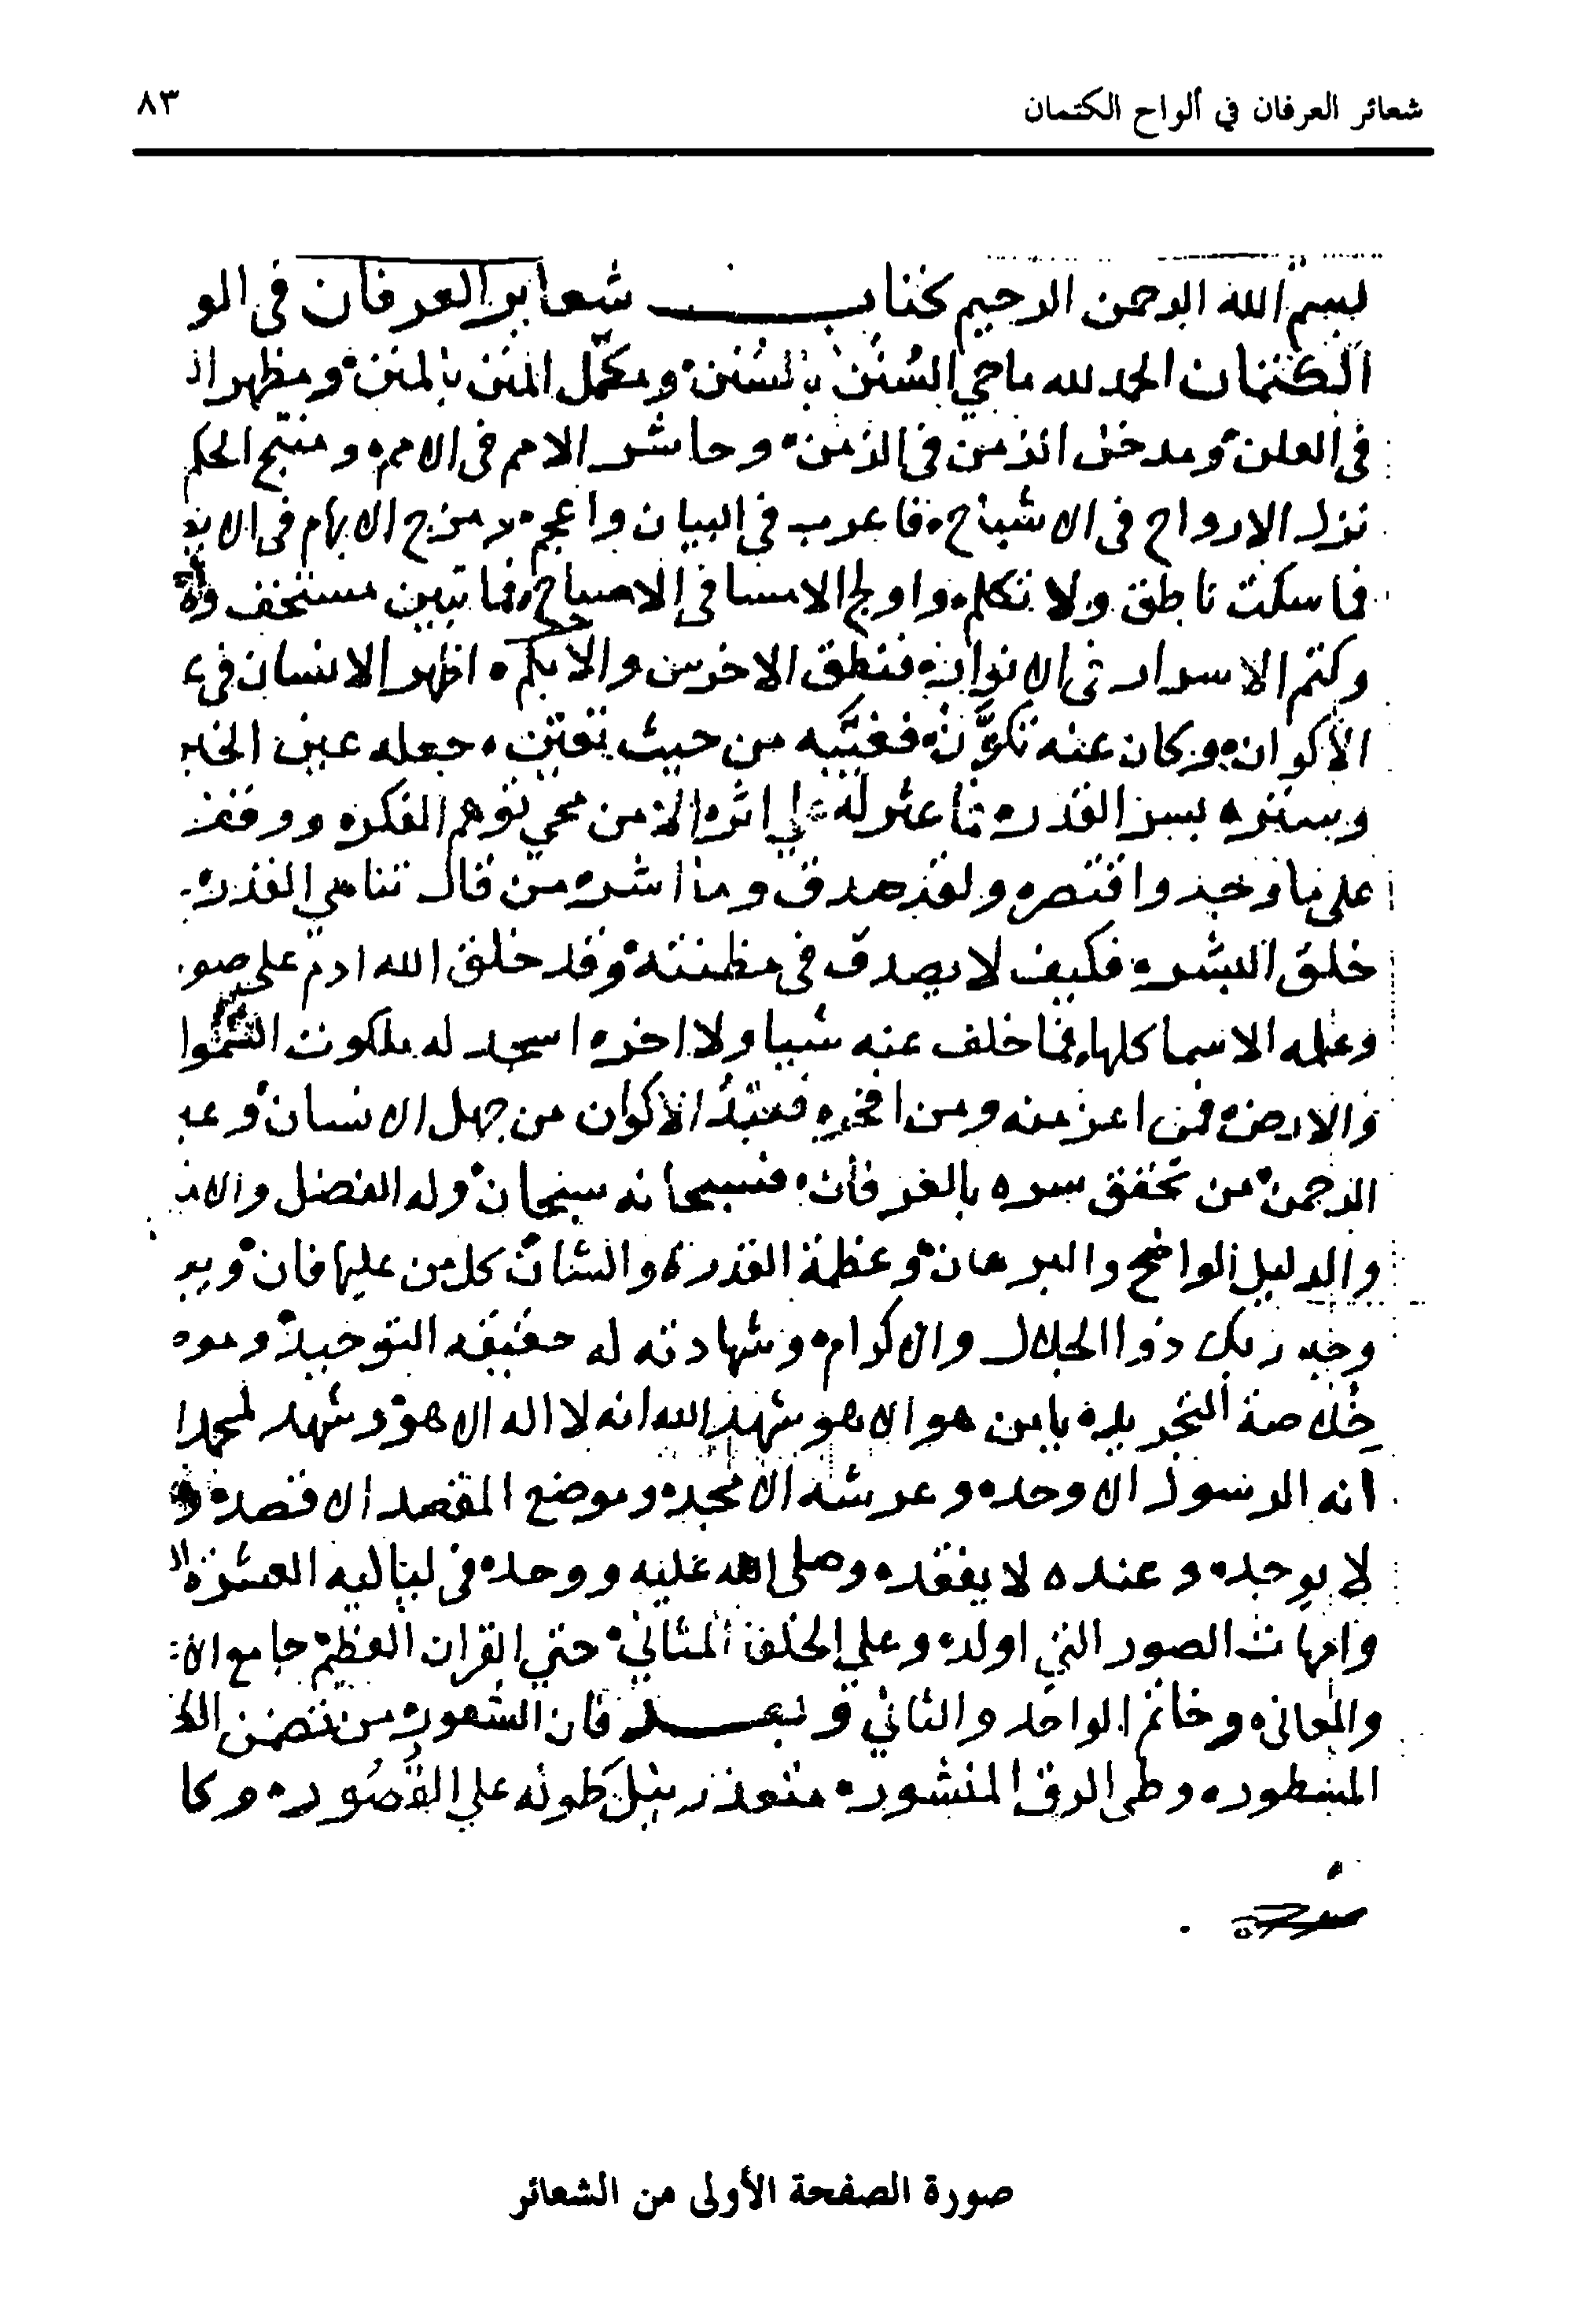 شعائر العرفان في ألواح الكتمان
٨٣
بسم الله الرحمن الرحيم كتاب شعاير العرفان في الو
الكتمان الحمد لله ماحي السنن بالسنن ومكمل المنن بالمنن ومظهر
في العلن ومدخل الزمن في الزمن وحاشر الامم في الامم ومنتج الحكم
نزل الارواح في الاشباح فاعرب في البيان واعجم مزج الابهام في
فما سكت ناطق ولا تكلم واولج الامسا في الاصباح فما تبين مستخف
وكتم الاسرار في فنطق الاخرس والابكم اظهر الانسان في
الأكوان وكان عنه تكوّن فغيبه من حيث تعين جعله عين
وستره بسر القدره فما عثر له على اثره الا من محي توهم الفكره
على ما وجد واقتصره ولقد صدق وما اشره من قال تناهي القدره
خلق البشره فكيف لا يصدق في مظنته وقد خلق الله ادم على
وعلمه الاسما كلها فما خلف عنه شيا ولا اخره اسجد له ملكوت السموا
والارض فمن اعز منه ومن افخره فعبد الاكوان من جهل الانسان
الرحمن من تحقق سره بالعرفان فسبحانه سبحان وله الفضل
والدليل الواضح والبرهان وعظمة القدرة والشان كل من عليها فان
وجه ربك ذوا الجلال والاكرام وشهادته له حقيقه التوحيد
خلاصة التجريده يا من هو الا هو شهد الله انه لا اله الا هو وشهد لمحمد
انه الرسول الاوحد وعرشه الامجد وموضع المقصد الاقصد
لا يوجده وعنده لا يفقده وصلى الله عليه ووحده في لياليه العشرة
وامهات الصور التي اولده وعلى الخلف المثاني حتى القران العظيم جامع
والمعاني وخاتم الواحد والثاني وبعد فان الشعور من تضمن
المسطوره وطي الرق المنشوره متعذر نيل طوله على القصوره وكا
صورة الصفحة الأولى من الشعائر